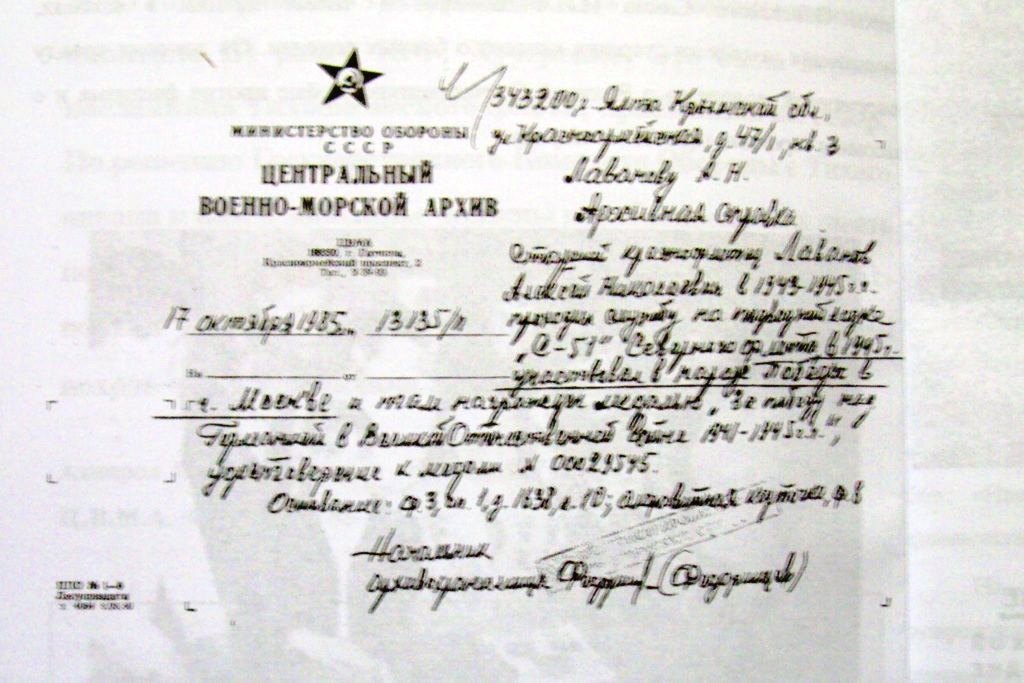 МИНИСТЕРСТВО ОБОРОНЫ
СССР
ЦЕНТРАЛЬНЫЙ
ВОЕННО-МОРСКОЙ АРХИВ
17 октября 1985г. 13135/п
№ от
343200, Ялта Крымской обл.,
ул Красноармейская, д. 47/1, кв. 3
Лаванову А. Н.
Архивная справка
Старший краснофлотец Лаванов
Алексей Николаевич в 1943-1945 г.г.
проходил службу на подводной лодке
"С-51" Северного флота, в 1945г.
участвовал в параде Победы в
г. Москве и там награжден медалью "За победу над
Германией в Великой Отечественной Войне 1941-1945г.г.",
удостоверение к медали №
Основание: ф. 3, оп. 1, д. 1638, л. 10;
Начальник
архивохранилища